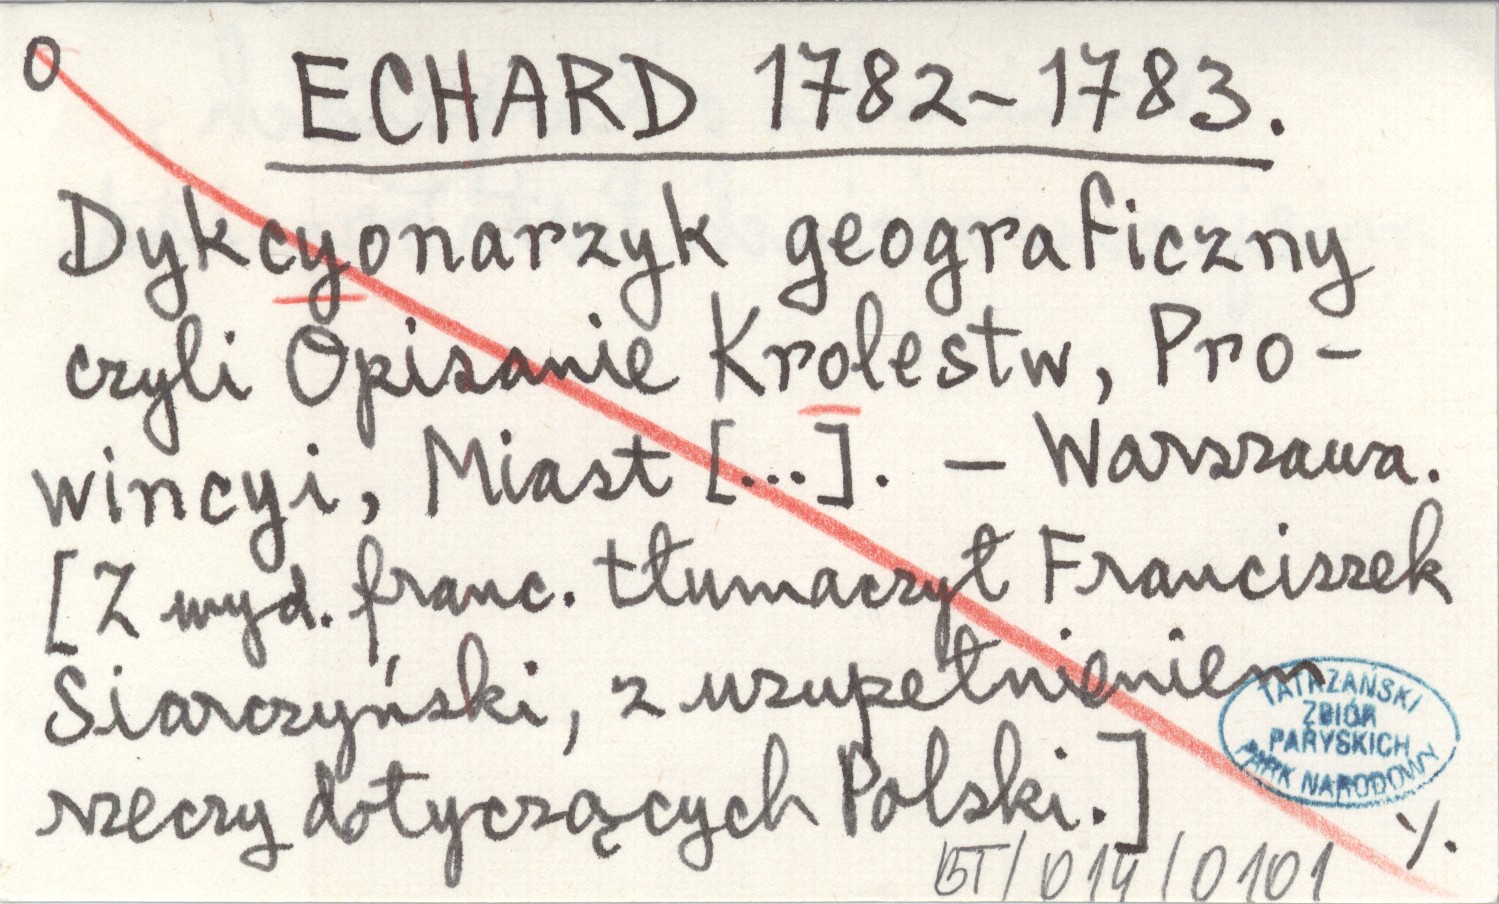 O
ECHARD 1782-1783.
Dykcyonarzyk geograficzny
czyli Opisanie Krolestw, Pro-
wincyi, Miast [...]. — Warszawa.
[Z wyd. franc. tłumaczył Franciszek
Siarczyński, z uzupełnieniem
rzeczy dotyczących Polski.]
TATRZAŃSKI
ZBIÓR
PARYSKICH
PARK NARODOWY
·/.
BT/014/0101